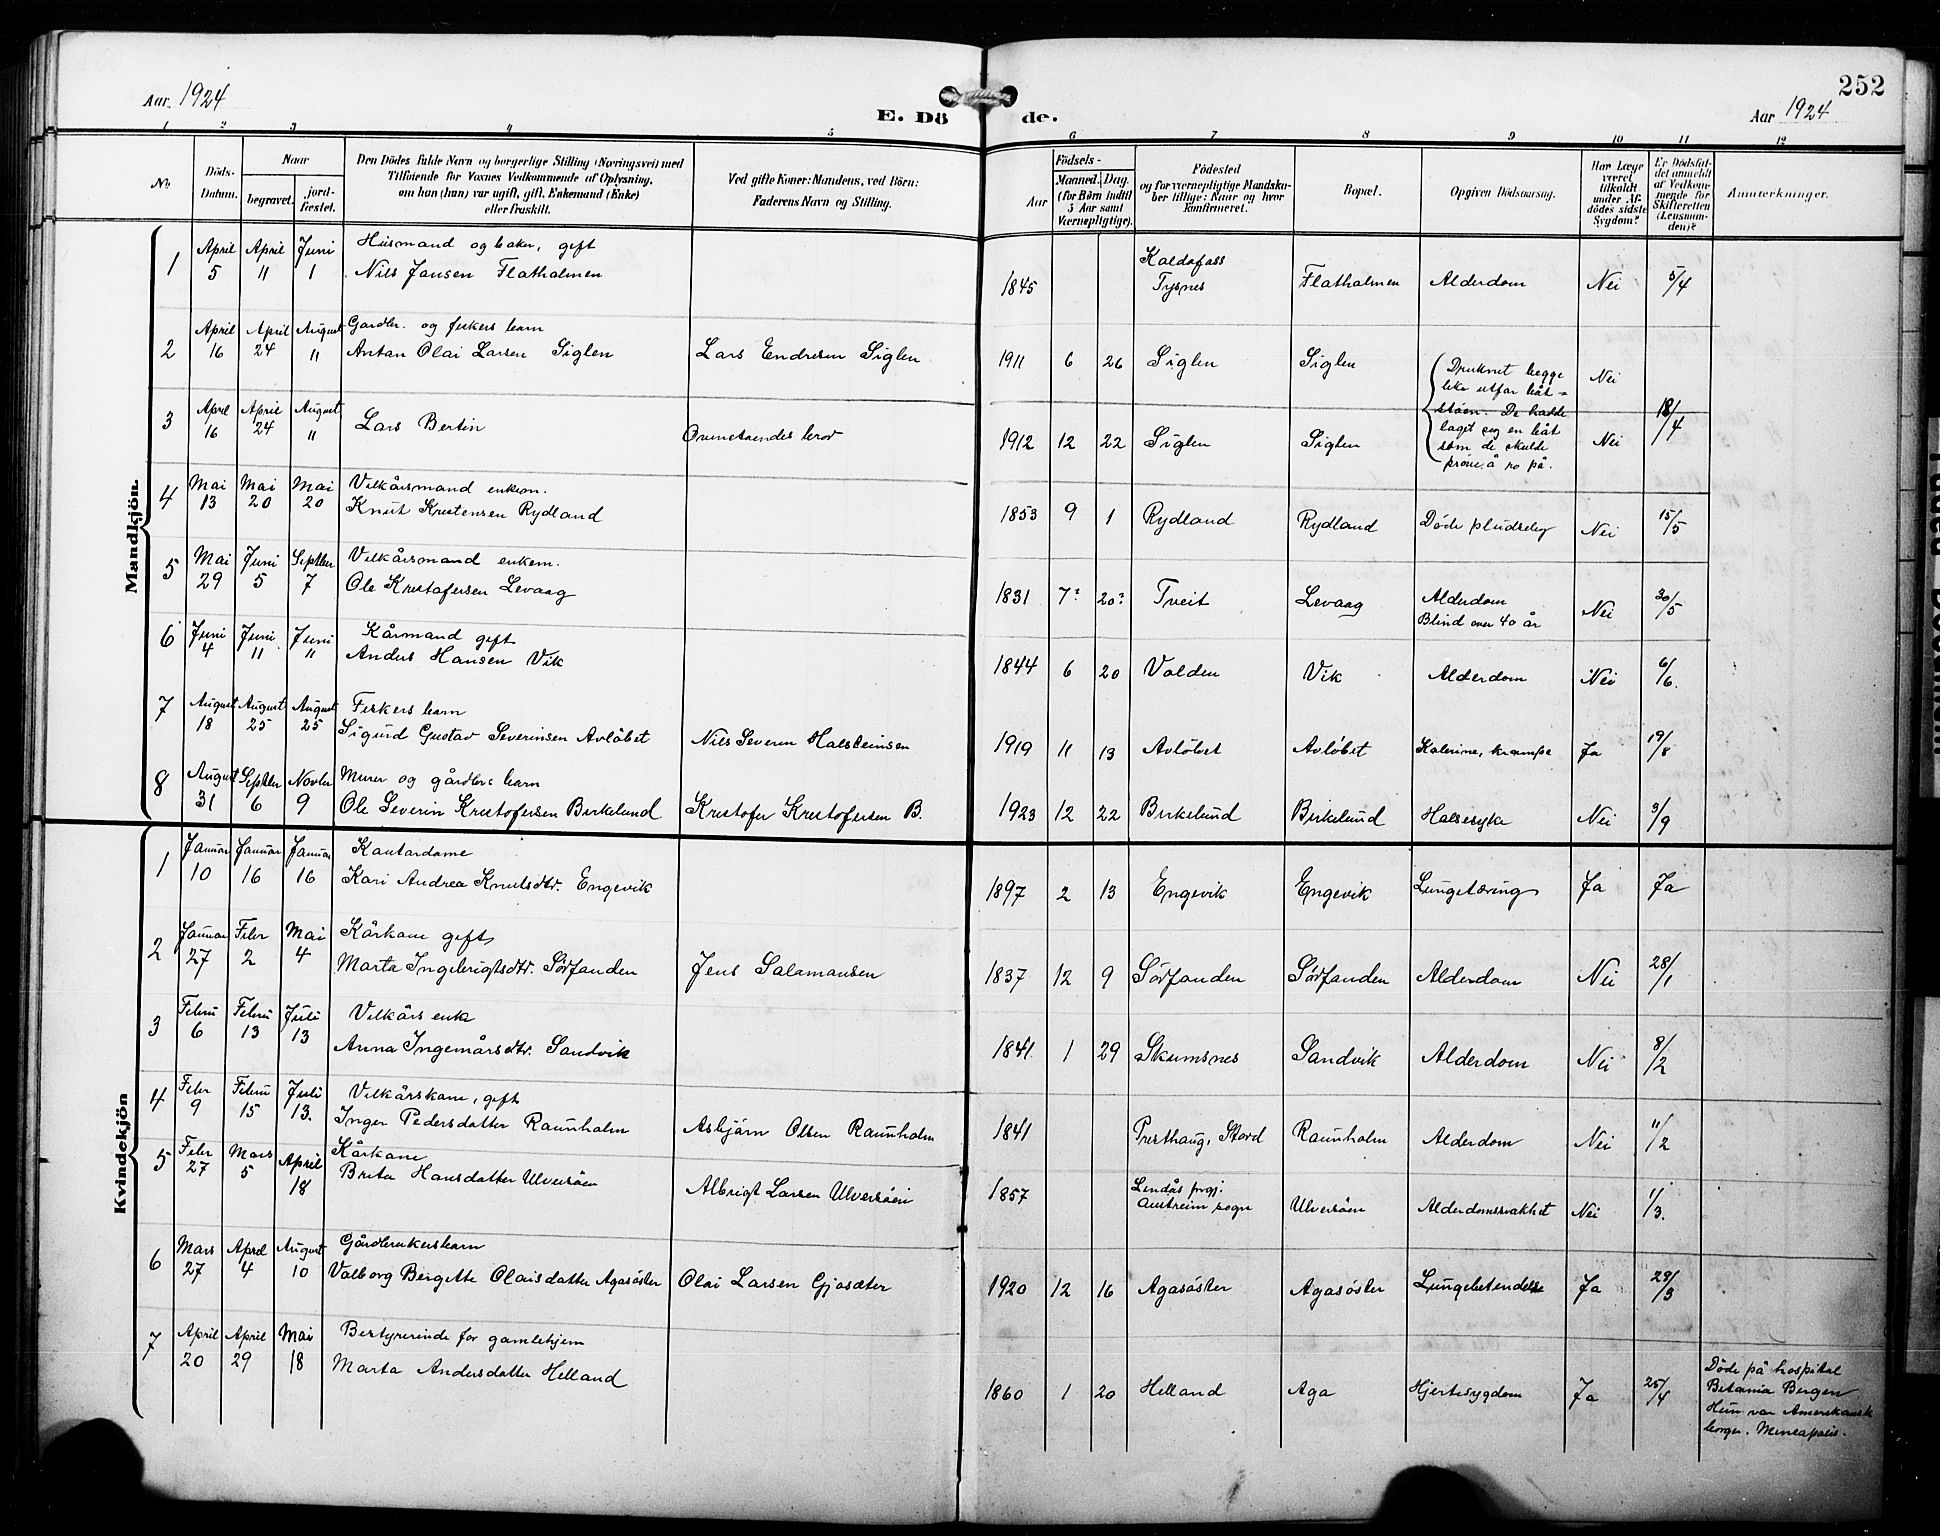 252
Aar 1924
E. Döde.
Aar 1924
1 2 3 4 5 6 7 8 9 10 11 12
No
Döds-Datum.
Naar
begravet.
jord-fæstet.
Den Dödes fulde Navn og borgerlige Stilling (Næringsvei) med
Tilföiende for Voxnes Vedkommende af Oplysning,
om han (hun) var ugift, gift, Enkemand (Enke)
eller fraskilt.
Ved gifte Koner: Mandens, ved Börn:
Faderens Navn og Stilling.
Födsels-
Aar
Maaned. Dag.
(for Börn indtil
5 Aar samt
Værnepligtige).
Födested
og for værnepligtige Mandska-
ber tillige: Naar og hvor
konfirmeret.
Bopæl.
Opgiven Dödsaarsag.
Har Læge
været
tilkaldt
under Af-
dödes sidste
Sygdom?
Er Dödsfal-
det anmeldt
af Vedkom-
mende for
Skifteretten
(Lensman-
den)?
Anmærkninger.
Mandkjön.
1 April 5 April 11 Juni 1 Husmand og baker, gift
Nils Jansen Flatholmen 1845 Kaldafoss Tysnes Flatholmen Alderdom Nei 5/4
2 April 16 April 24 August 11 Gardbr. og fiskers barn
Anton Olai Larsen Siglen Lars Endresen Siglen 1911 6 26 Siglen Siglen Nei
Druknet begge
like utfor båt-
støen. De hadde
laget sig en båt
som de skulde
prøve å ro på.
3 April 16 April 24 August 11 Lars Bertin Ovenstaendes bror 1912 12 22 Siglen Siglen Nei 18/4
4 Mai 13 Mai 20 Mai 20 Vilkårsmand enkem.
Knut Kristensen Rydland 1853 9 1 Rydland Rydland Døde pludselig Nei 15/5
5 Mai 29 Juni 5 Septber 7 Vilkårsmand enkem.
Ole Kristofersen Levaag 1831 7? 20? Tveit Levaag Alderdom
Blind over 40 år Nei 30/5
6 Juni 4 Juni 11 Juni 11 Kårmand gift
Anders Hansen Vik 1844 6 20 Valden Vik Alderdom Nei 6/6.
7 August 18 August 25 August 25 Fiskers barn
Sigurd Gustav Severinsen Avløbet Nils Severin Halsteinsen 1919 11 13 Avløbet Avløbet Kolerine, krampe Ja 19/8
8 August 31 Septber 6 Novber 9 Murer og gårdbr.s barn
Ole Severin Kristofersen Birkelund Kristofer Kristofersen B. 1923 12 22 Birkelund Birkelund Halsesyke Nei 3/9
Kvindekjön
1 Januar 10 Januar 16 Januar 16 Kontordame
Kari Andrea Knutsdtr. Engevik 1897 2 13 Engevik Engevik Lungetæring Ja Ja
2 Januar 27 Febr 2 Mai 4 Kårkone gift
Marta Ingebrigtsdtr. Sørfonden Jens Salamonsen 1837 12 9 Sørfonden Sørfonden Alderdom Nei 28/1
3 Febru 6 Febru 13 Juli 13 Vilkårs enke
Anna Ingemårsdtr. Sandvik 1841 1 29 Skumsnes Sandvik Alderdom Nei 8/2
4 Febr 9 Febru 15 Juli 13. Vilkårskone, gift
Inger Pedersdatter Raunholm Asbjørn Olsen Raunholm 1841 Presthaug, Stord Raunholm Alderdom Nei 11/2
5 Febr 27 Mars 5 April 18 Kårkone
Brita Hansdatter Ulversøen Albrigt Larsen Ulversøen 1857 Lindås prgj.
Austreim sogn Ulversøen Alderdomssvakhet Nei 1/3.
6 Mars 27 April 4 August 10 Gårdbrukersbarn
Valborg Bergitte Olaisdatter Agasøster Olai Larsen Gjosæter 1920 12 16 Agasøster Agasøster Lungebetendelse Ja 29/3
7 April 20 April 29 Mai 18 Bestyrerinde for gamlehjem
Marta Andersdatter Helland 1860 1 20 Helland Aga Hjertesygdom Ja 25/4
Døde på hospital
Betania Bergen
Hun var Amerikansk
borger. Mineapolis.